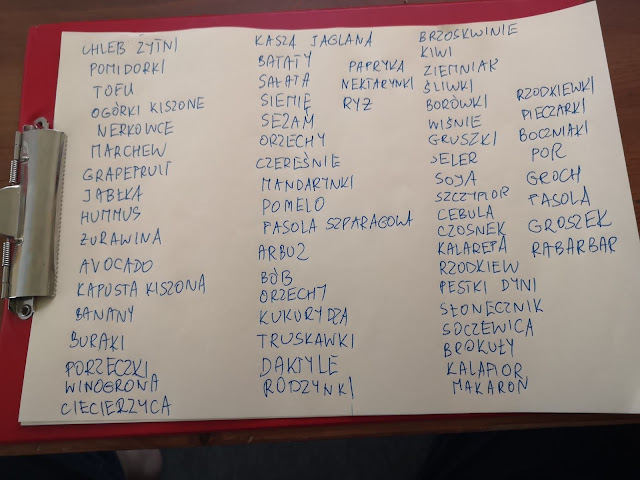 CHLEB ŻYTNI
POMIDORKI
TOFU
OGÓRKI KISZONE
NERKOWCE
MARCHEW
GRAPEFRUIT
JABŁKA
HUMMUS
ŻURAWINA
AVOCADO
KAPUSTA KISZONA
BANANY
BURAKI
PORZECZKI
WINOGRONA
CIECIERZYCA
KASZA JAGLANA
BATATY
SAŁATA
SIEMIĘ
SEZAM
ORZECHY
CZEREŚNIE
MANDARYNKI
POMELO
FASOLA SZPARAGOWA
ARBUZ
BÓB
ORZECHY
KUKURYDZA
TRUSKAWKI
DAKTYLE
RODZYNKI
PAPRYKA
NEKTARYNKI
RYŻ
BRZOSKWINIE
KIWI
ZIEMNIAK
ŚLIWKI
BORÓWKI
WIŚNIE
GRUSZKI
SELER
SOJA
SZCZYPIOR
CEBULA
CZOSNEK
KALAREPA
RZODKIEW
PESTKI DYNI
SŁONECZNIK
SOCZEWICA
BROKUŁY
KALAFIOR
MAKARON
RZODKIEWKI
PIECZARKI
BOCZNIAKI
POR
GROCH
FASOLA
GROSZEK
RABARBAR